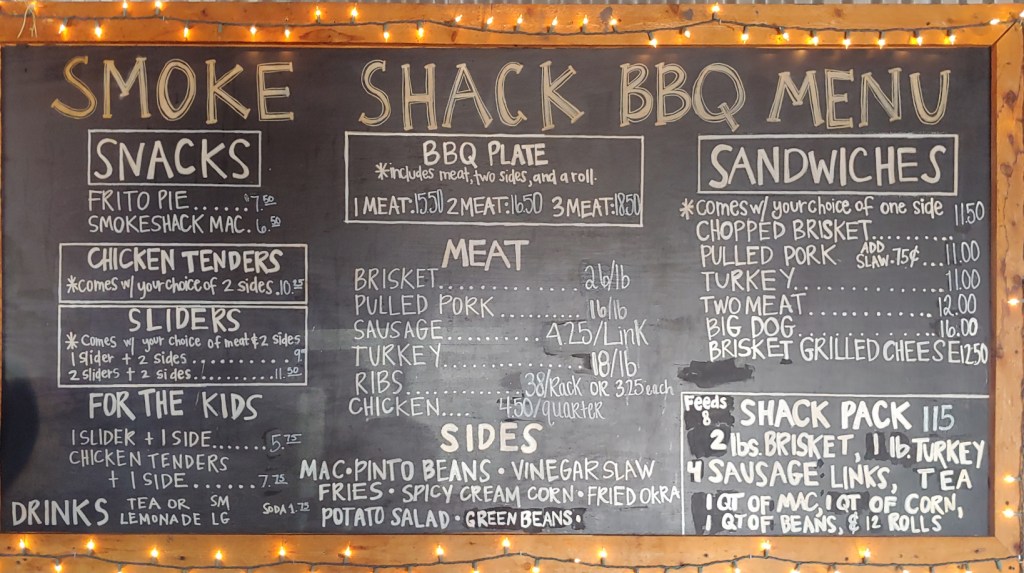 SMOKE SHACK BBQ MENU
SNACKS
FRITO PIE......$7.50
SMOKESHACK MAC. 6.50
CHICKEN TENDERS
*comes w/ your choice of 2 sides.10.25
SLIDERS
*Comes w/ your choice of meat & 2 sides
1 slider + 2 sides............
2 sliders + 2 sides..........11.50
FOR THE KIDS
1 SLIDER + 1 SIDE......5.75
CHICKEN TENDERS
+ 1 SIDE.........7.75
DRINKS
TEA OR SM
LEMONADE LG
SODA 1.75
BBQ PLATE
*includes meat, two sides, and a roll.
1 MEAT:15.50 2 MEAT:16.50 3 MEAT:18.50
MEAT
BRISKET..................26/lb
PULLED PORK............16/lb
SAUSAGE..............4.25/Link
TURKEY...................18/lb
RIBS..............38/Rack OR 3.25 each
CHICKEN......4.50/quarter
SIDES
MAC•PINTO BEANS•VINEGAR SLAW
FRIES•SPICY CREAM CORN•FRIED OKRA
POTATO SALAD•GREEN BEANS•
SANDWICHES
*comes w/ your choice of one side
CHOPPED BRISKET..........11.50
PULLED PORK ADD SLAW .75¢...11.00
TURKEY................11.00
TWO MEAT.............12.00
BIG DOG..............16.00
BRISKET GRILLED CHEESE 12.50
Feeds 8
SHACK PACK 115
2 lbs. BRISKET, 1 lb. TURKEY
4 SAUSAGE LINKS, TEA
1 QT OF MAC, 1 QT OF CORN,
1 QT OF BEANS, & 12 ROLLS